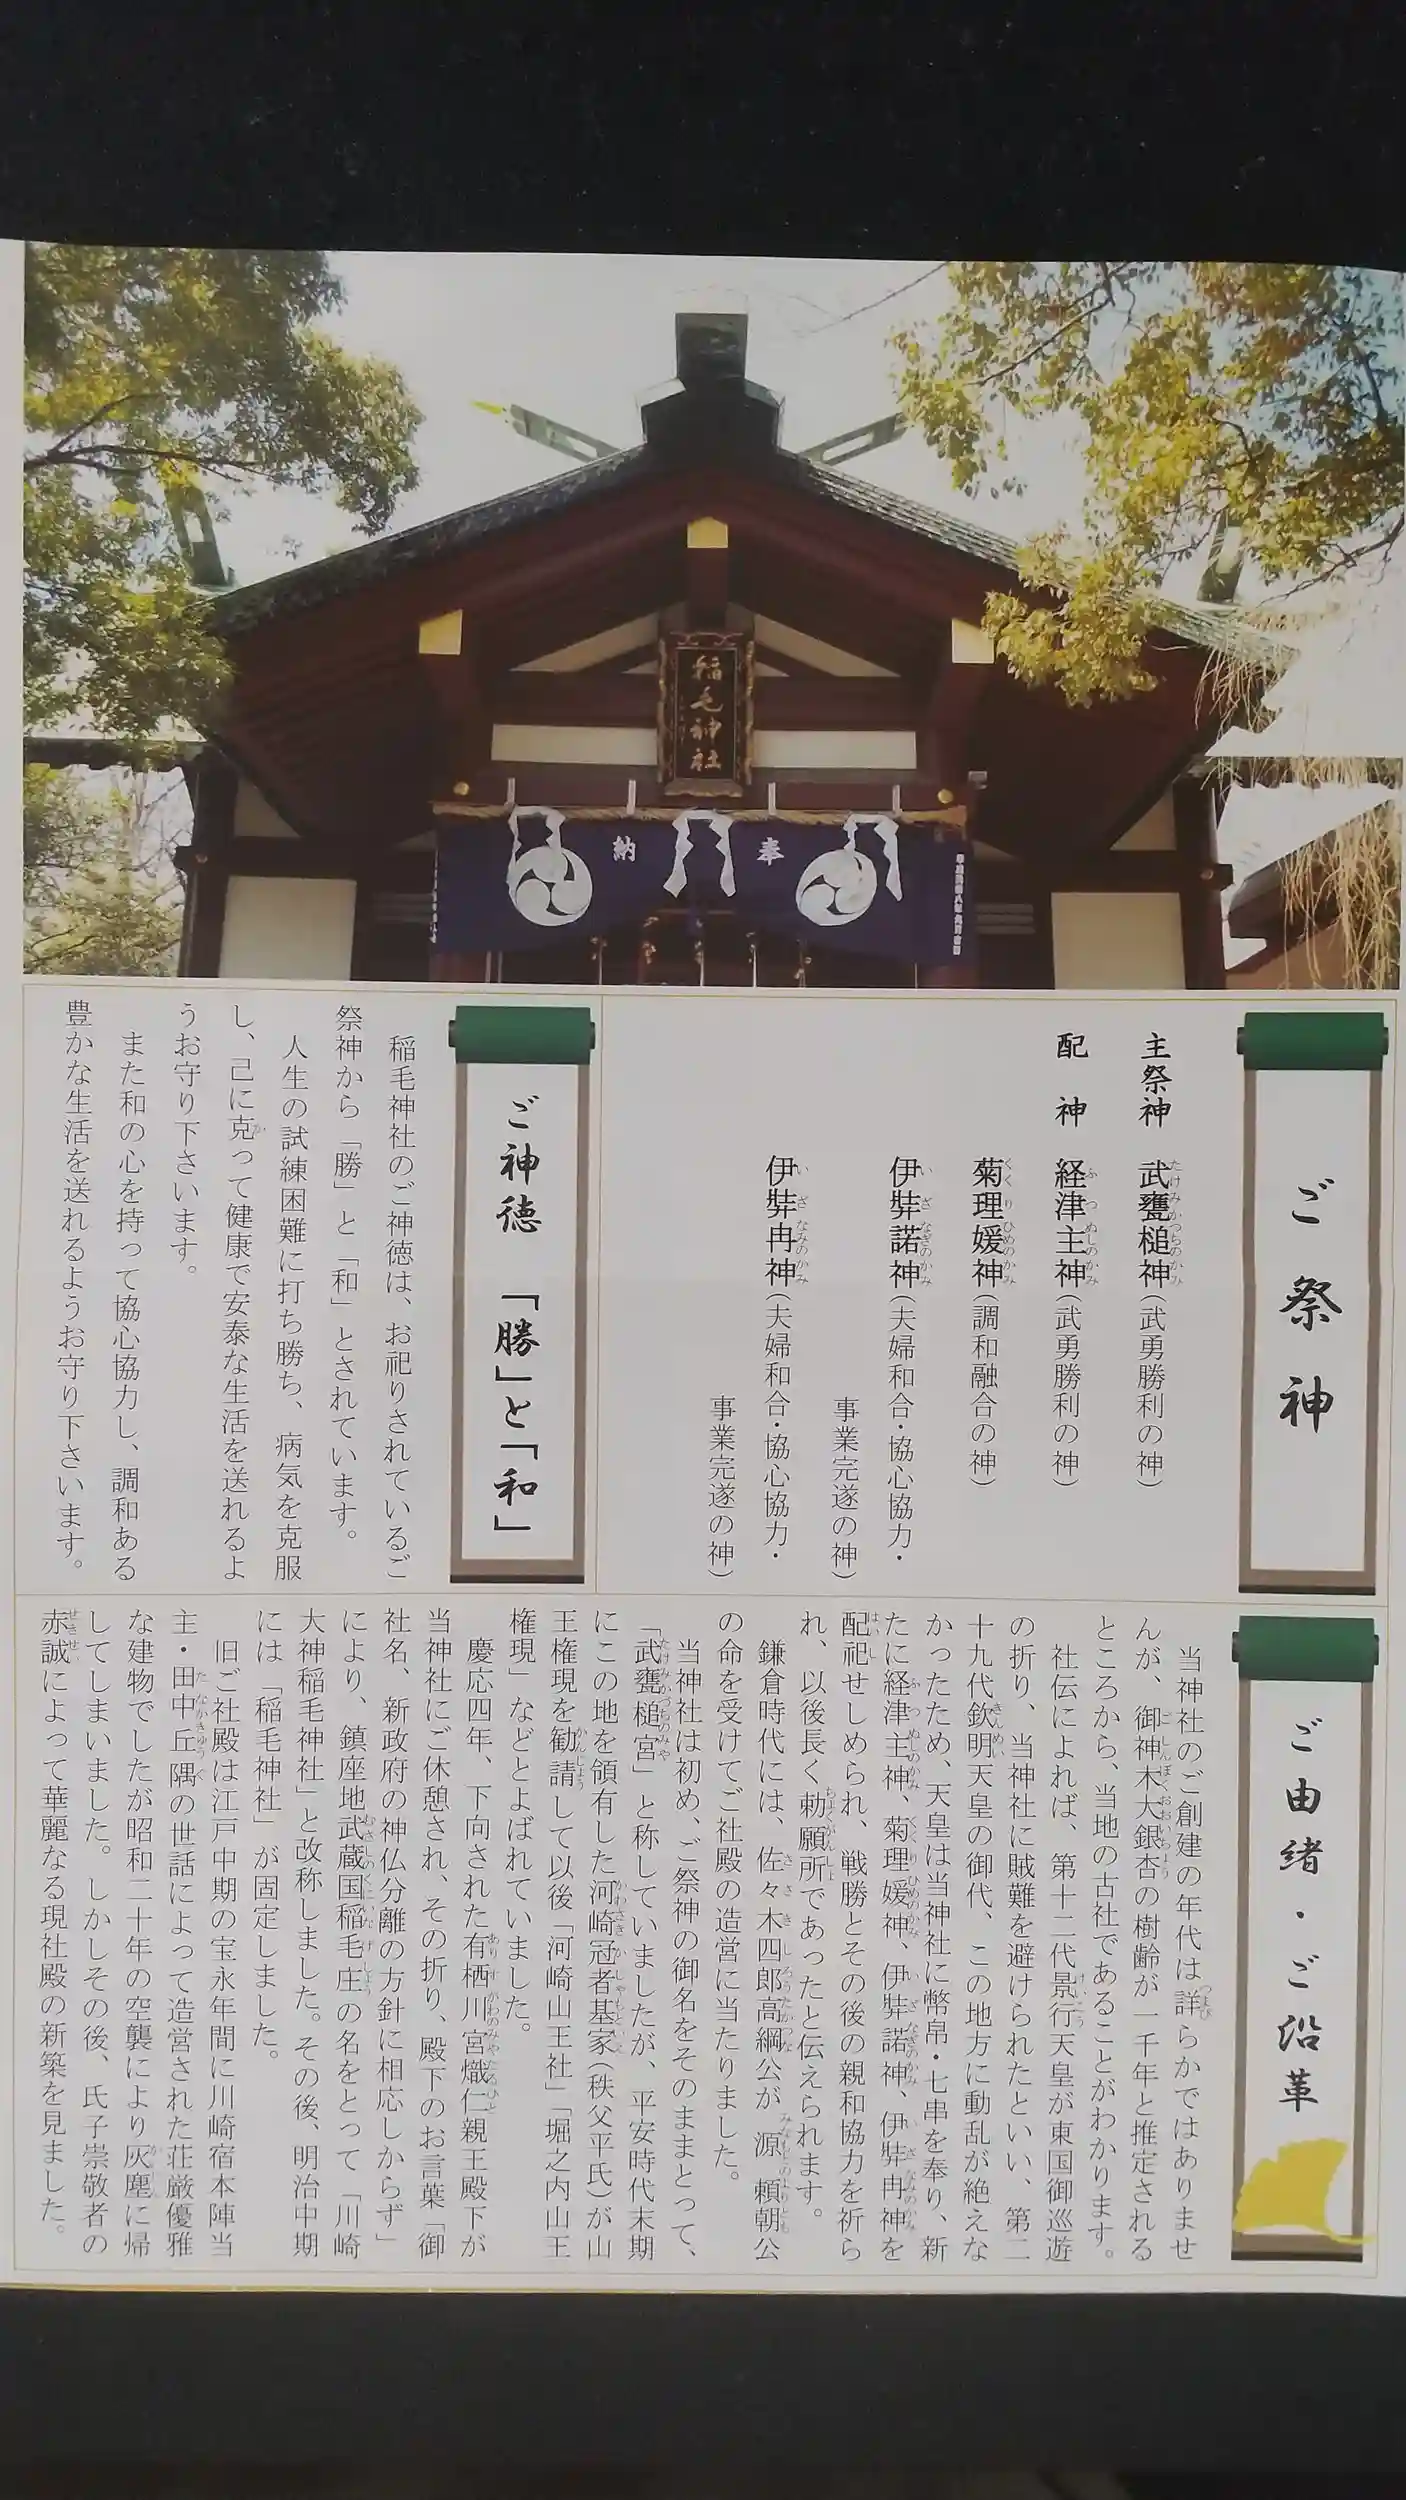 稲毛神社
奉納
ご祭神
主祭神　武甕槌神（武勇勝利の神）
たけみかつちのかみ
配　神　経津主神（武勇勝利の神）
ふつぬしのかみ
菊理媛神（調和融合の神）
くくりひめのかみ
伊弉諾神（夫婦和合・協心協力・
いざなぎのかみ
事業完遂の神）
伊弉冉神（夫婦和合・協心協力・
いざなみのかみ
事業完遂の神）
ご神徳　「勝」と「和」
稲毛神社のご神徳は、お祀りされているご
祭神から「勝」と「和」とされています。
人生の試練困難に打ち勝ち、病気を克服
し、己に克って健康で安泰な生活を送れるよ
か
うお守り下さいます。
また和の心を持って協心協力し、調和ある
豊かな生活を送れるようお守り下さいます。
ご由緒・ご沿革
当神社のご創建の年代は詳らかではありませ
つまび
んが、御神木大銀杏の樹齢が一千年と推定される
ごしんぼくおおいちょう
ところから、当地の古社であることがわかります。
社伝によれば、第十二代景行天皇が東国御巡遊
けいこう
の折り、当神社に賊難を避けられたといい、第二
十九代欽明天皇の御代、この地方に動乱が絶えな
きんめい
かったため、天皇は当神社に幣帛・七串を奉り、新
たに経津主神、菊理媛神、伊弉諾神、伊弉冉神を
ふつぬしのかみ　くくりひめのかみ　いざなぎのかみ　いざなみのかみ
配祀せしめられ、戦勝とその後の親和協力を祈ら
はいし
れ、以後長く勅願所であったと伝えられます。
ちょくがんしょ
鎌倉時代には、佐々木四郎高綱公が源頼朝公
ささきしろうたかつな　みなもとのよりとも
の命を受けてご社殿の造営に当たりました。
当神社は初め、ご祭神の御名をそのままとって、
「武甕槌宮」と称していましたが、平安時代末期
たけみかづちのみや
にこの地を領有した河崎冠者基家（秩父平氏）が山
かわさきかしゃもといえ
王権現を勧請して以後「河崎山王社」「堀之内山王
かんじょう
権現」などとよばれていました。
慶応四年、下向された有栖川宮熾仁親王殿下が
ありすがわのみやたるひと
当神社にご休憩され、その折り、殿下のお言葉「御
社名、新政府の神仏分離の方針に相応しからず」
により、鎮座地武蔵国稲毛庄の名をとって「川崎
むさしのくにいなげしょう
大神稲毛神社」と改称しました。その後、明治中期
には「稲毛神社」が固定しました。
旧ご社殿は江戸中期の宝永年間に川崎宿本陣当
主・田中丘隅の世話によって造営された荘厳優雅
たなかきゅうぐ
な建物でしたが昭和二十年の空襲により灰塵に帰
かいじん
してしまいました。しかしその後、氏子崇敬者の
赤誠によって華麗なる現社殿の新築を見ました。
せきせい